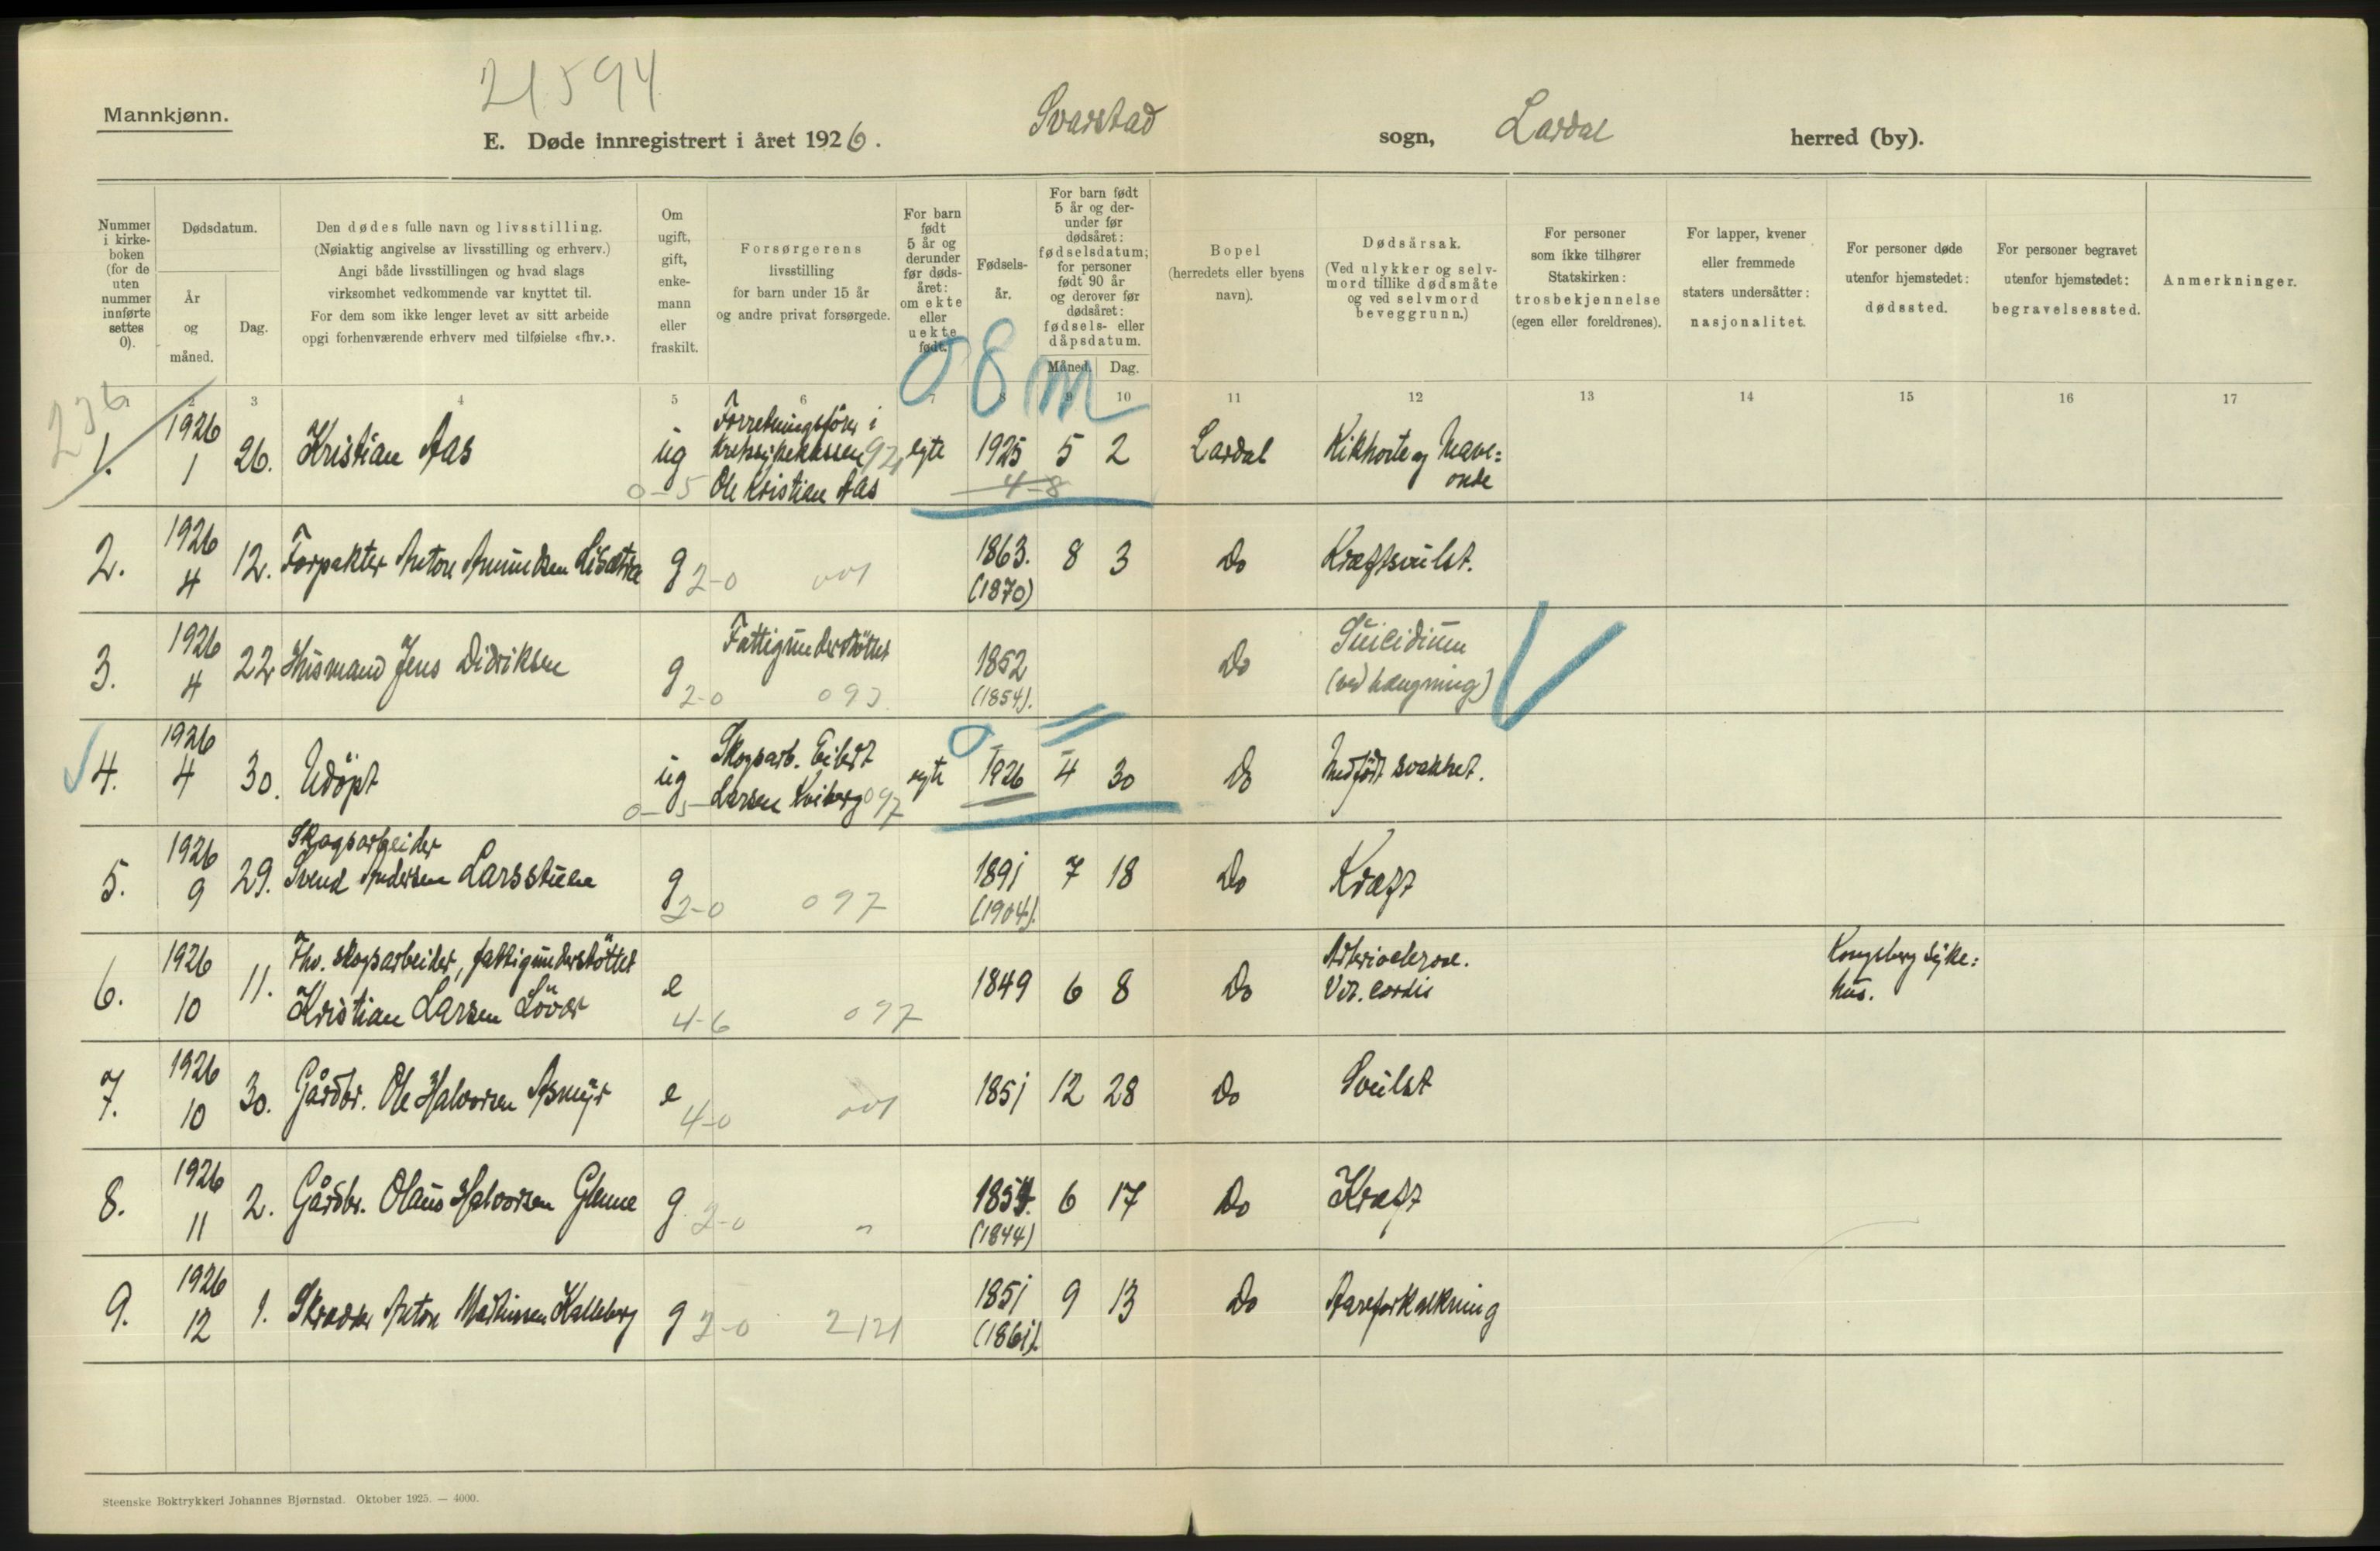 21594
Mannkjønn.
E. Døde innregistrert i året 1926. Svarstad sogn, Lardal herred (by).
Nummer i kirke- boken (for de uten nummer innførte settes 0).
Dødsdatum.
År og måned.
Dag.
Den dødes fulle navn og livsstilling.
(Nøiaktig angivelse av livsstilling og erhverv.)
Angi både livsstillingen og hvad slags
virksomhet vedkommende var knyttet til.
For dem som ikke lenger levet av sitt arbeide
opgi forhenværende erhverv med tilføielse «fhv.».
Om ugift, gift, enke- mann eller fraskilt.
Forsørgerens
livsstilling
for barn under 15 år
og andre privat forsørgede.
For barn født 5 år og derunder før døds- året: om ekte eller uekte født.
Fødsels- år.
For barn født 5 år og der- under før dødsåret: fødselsdatum; for personer født 90 år og derover før dødsåret: fødsels- eller dåpsdatum.
Måned. Dag.
Bopel
(herredets eller byens
navn).
Dødsårsak.
(Ved ulykker og selv-
mord tillike dødsmåte
og ved selvmord
beveggrunn.)
For personer
som ikke tilhører
Statskirken:
trosbekjennelse
(egen eller foreldrenes).
For lapper, kvener
eller fremmede
staters undersåtter:
nasjonalitet.
For personer døde
utenfor hjemstedet:
dødssted.
For personer begravet
utenfor hjemstedet:
begravelsessted.
Anmerkninger.
08 m
236
2 3 4 5 6 7 8 9 10 11 12 13 14 15 16 17
1. 1926 1 26. Kristian Aas ug Forretningsförer i
Kretssykekassen 921 egte 1925 5 2 Lardal Kikhoste og Mave=
0-5 Ole Kristian Aas 4-8 onde
2. 1926 4 12. Forpakter Anton Amundsen g 2-0 001 1863. (1870) 8 3 Do Kræftsvulst.
3. 1926 4 22 Husmand Jens Didriksen g 2-0 Fattigunderstöttet 093 1852 (1854). Do Suicidium
(ved hængning)
4. 1926 4 30. Udöpt ug 0-5 Skogsarb. Eilert
Larsen Kviberg 097 egte 1926 4 30 Do Medfödt svakhet.
5. 1926 9 29. Skogsarbeider
Svend Andersen Larsstuen g 2-0 097 1891 (1904). 7 18 Do Kræft
6. 1926 10 11. Fhv. skogsarbeider, fattigunderstöttet
Kristian Larsen e 4-6 097 1849 6 8 Do
Vit. cordis Kongsberg syke=
hus.
7. 1926 10 30. Gårdbr. Ole Halvorsen Asmyr e 4-0 001 1851 12 28 Do Svulst
8. 1926 11 2. Gårdbr. Olaus Halvorsen Glenne g 2-0 " 1854. (1844) 6 17 Do Kræft
9. 1926 12 1. Skrædder Anton Mathissen Kalleberg g 2-0 2121 1851 (1861). 9 13 Do Aareforkalkning
Steenske Boktrykkeri Johannes Bjørnstad. Oktober 1925. — 4000.